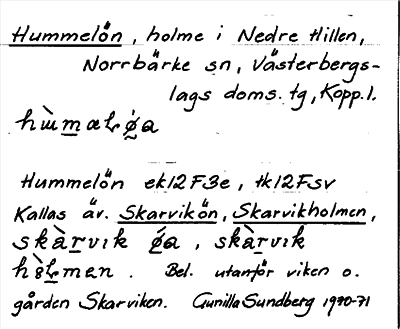 Hummelön, holme i Nedre Hillen,
Norrbärke sn, Västerbergs-
lags doms. tg, Kopp. l.
Hummelön ek12F3e, tk12Fsv
Kallas äv. Skarvikön, Skarvikholmen,
skàrvɩk ǿa, skàrvɩk
Bel. utanför viken o.
gården Skarviken. Gunilla Sundberg 1970-71